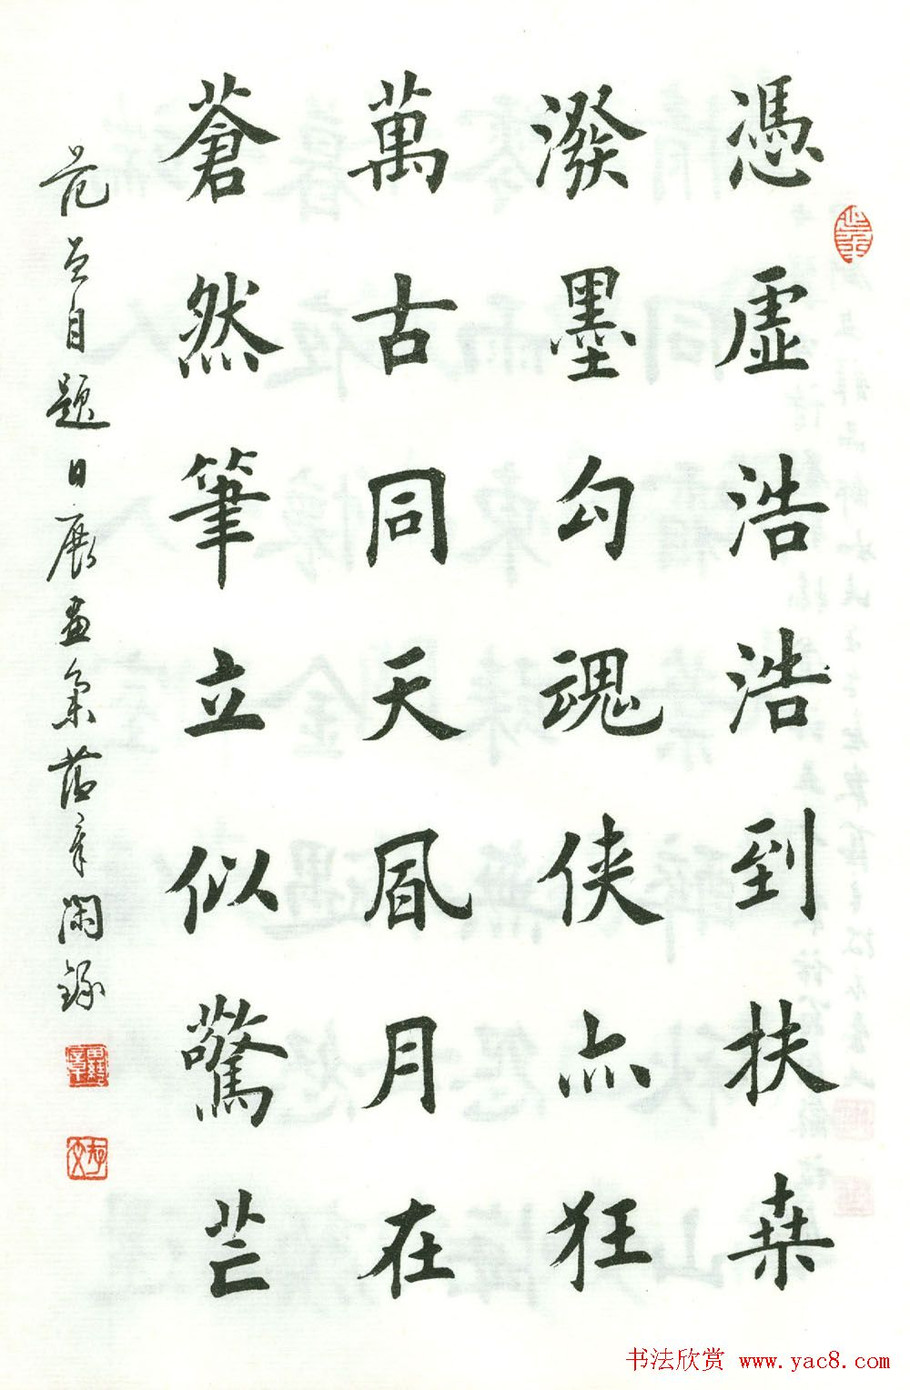 憑虛浩浩到扶桒
潑墨勾魂侠亦狂
萬古同天風月在
蒼然筆立似驚芒
范曾自題日展畫集閑錄
书法欣赏 www.yac8.com